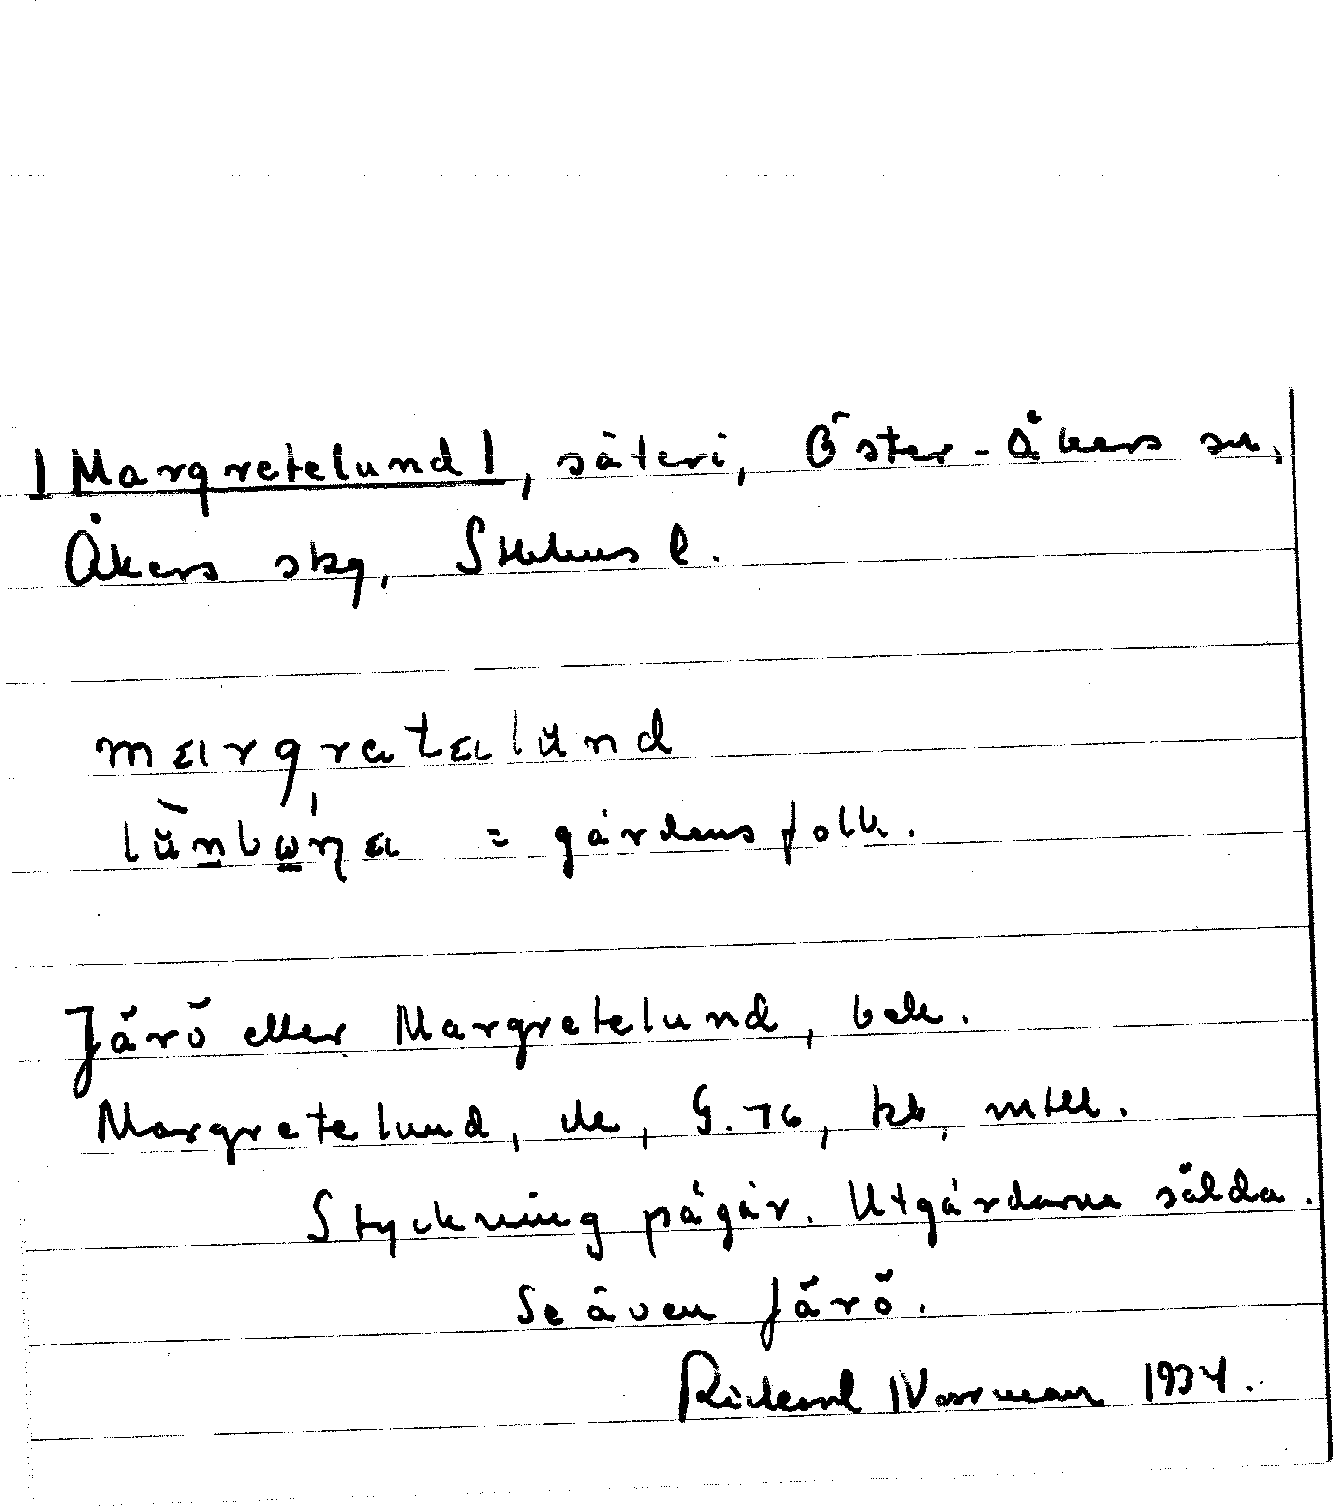 [Margretelund], säteri, Öster-Åkers sn,
Åkers skg, Sthlms l.
margretalund
= gårdens folk.
Järö eller Margretelund, bek.
Margretelund, ek, G. 76, kb, mtll.
Styckning pågår. Utgårdarna sålda.
Se även Järö.
Rickard Norrman 1934.